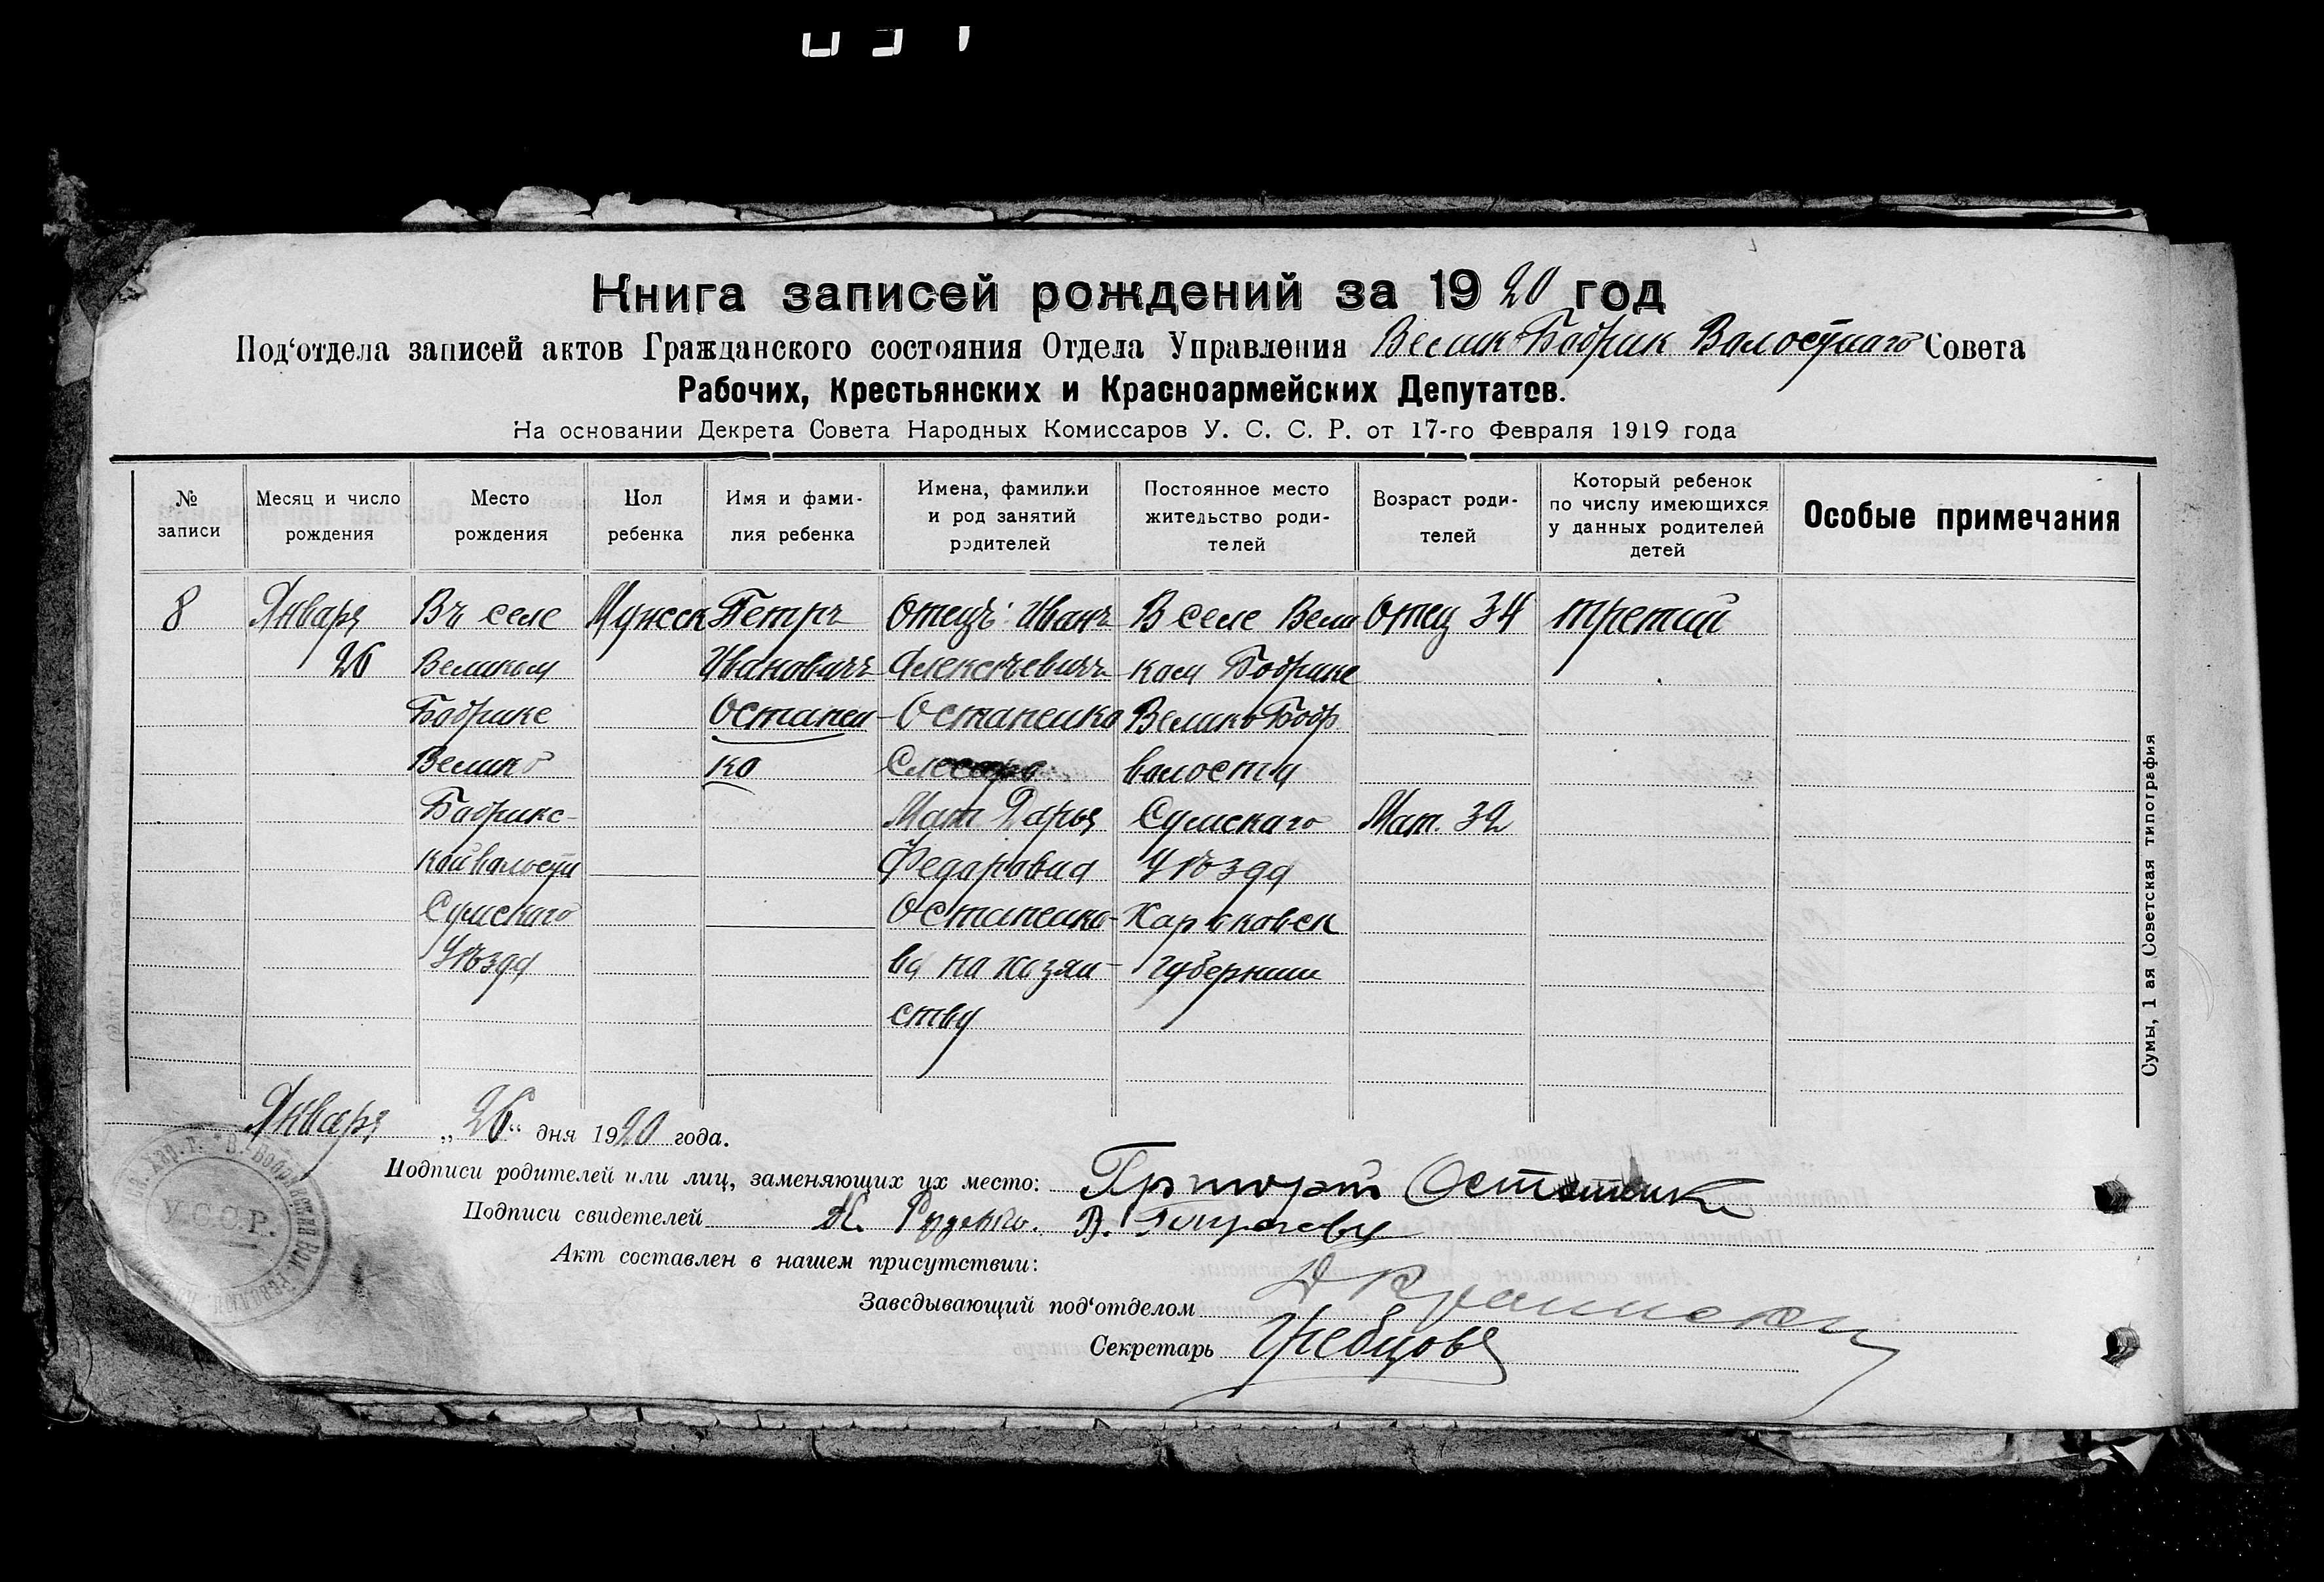 Книга записей рождений за 1920 год
Под‘отдела записей актов Гражданского состояния Отдела Управления Велико Бобрик Волостного Совета
Рабочих, Крестьянских и Красноармейских Депутатов.
На основании Декрета Совета Народных Комиссаров У. С. С. Р. от 17-го Февраля 1919 года
№ записи
Месяц и число рождения
Место рождения
Пол ребенка
Имя и фами-
лия ребенка
Имена, фамилии
и род занятий
родителей
Постоянное место
жительство роди-
телей
Возраст роди-
телей
Который ребенок
по числу имеющихся
у данных родителей
детей
Особые примечания
8
Января
26
Въ селе
Великом
Бобрике
Велико
Бобрикс-
кой волости
Сумскаго
Уѣзда
Мужск
Петръ
Ивановичъ
Остапен-
ко
Отецъ: Иванъ
Алексѣевичъ
Остапенко
Слесарь
Мат Дарья
Федоровна
Остапенко-
ва по хозяй-
ству
В селе Вели
ком Бобрике
Велико Бобр
волости
Сумскаго
Уѣзда
Харьковск
губернии
Отец 34
Мат. 32
третий
Января „26“ дня 1920 года.
Подписи родителей или лиц, заменяющих их место: Григорий Остапенко
Подписи свидетелей
Акт составлен в нашем присутствии:
Заведывающий под‘отделом
Секретарь
У.С.С.Р.
Сумы, 1 ая Советская типография